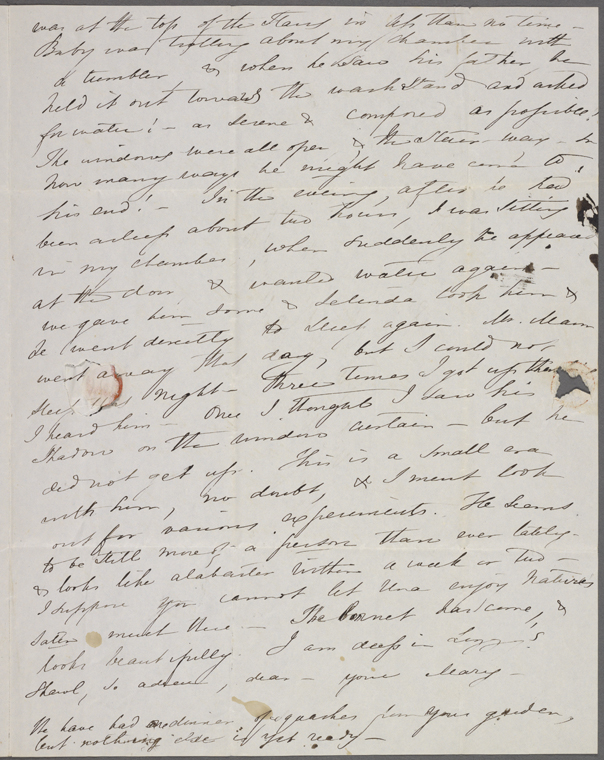 was at the top of the stairs in less than no time -
Baby was trotting about my chamber with
a tumbler & when he saw his father, he
held it out towards the wash stand and asked
for water! - as serene & composed as possible!
The windows were all open, & the stair-way - in
how many ways he might have come to
his end! - In the evening, after he had
been asleep about two hours, I was sitting
in my chamber, when suddenly he appeared
at the door & wanted water again -
we gave him some & Selinda took him &
he went directly to sleep again. Mr. Mann
went away that day, but I could not
sleep that night - Three times I got up
I heard him - Once I thought I saw his
shadow on the window curtain - but he
did not get up. This is a small era
with him, no doubt, & I must look
out for various experiments. He seems
to be still more of a person than ever lately -
& looks like alabaster within a week or two -
I suppose you cannot let Una enjoy Nature's
much there - The bonnet has come, &
looks beautifully. I am deep in Lizzie's
Shawl, so adieu, dear - your Mary -
We have had one dinner of squashes from your garden,
but nothing else is yet ready -